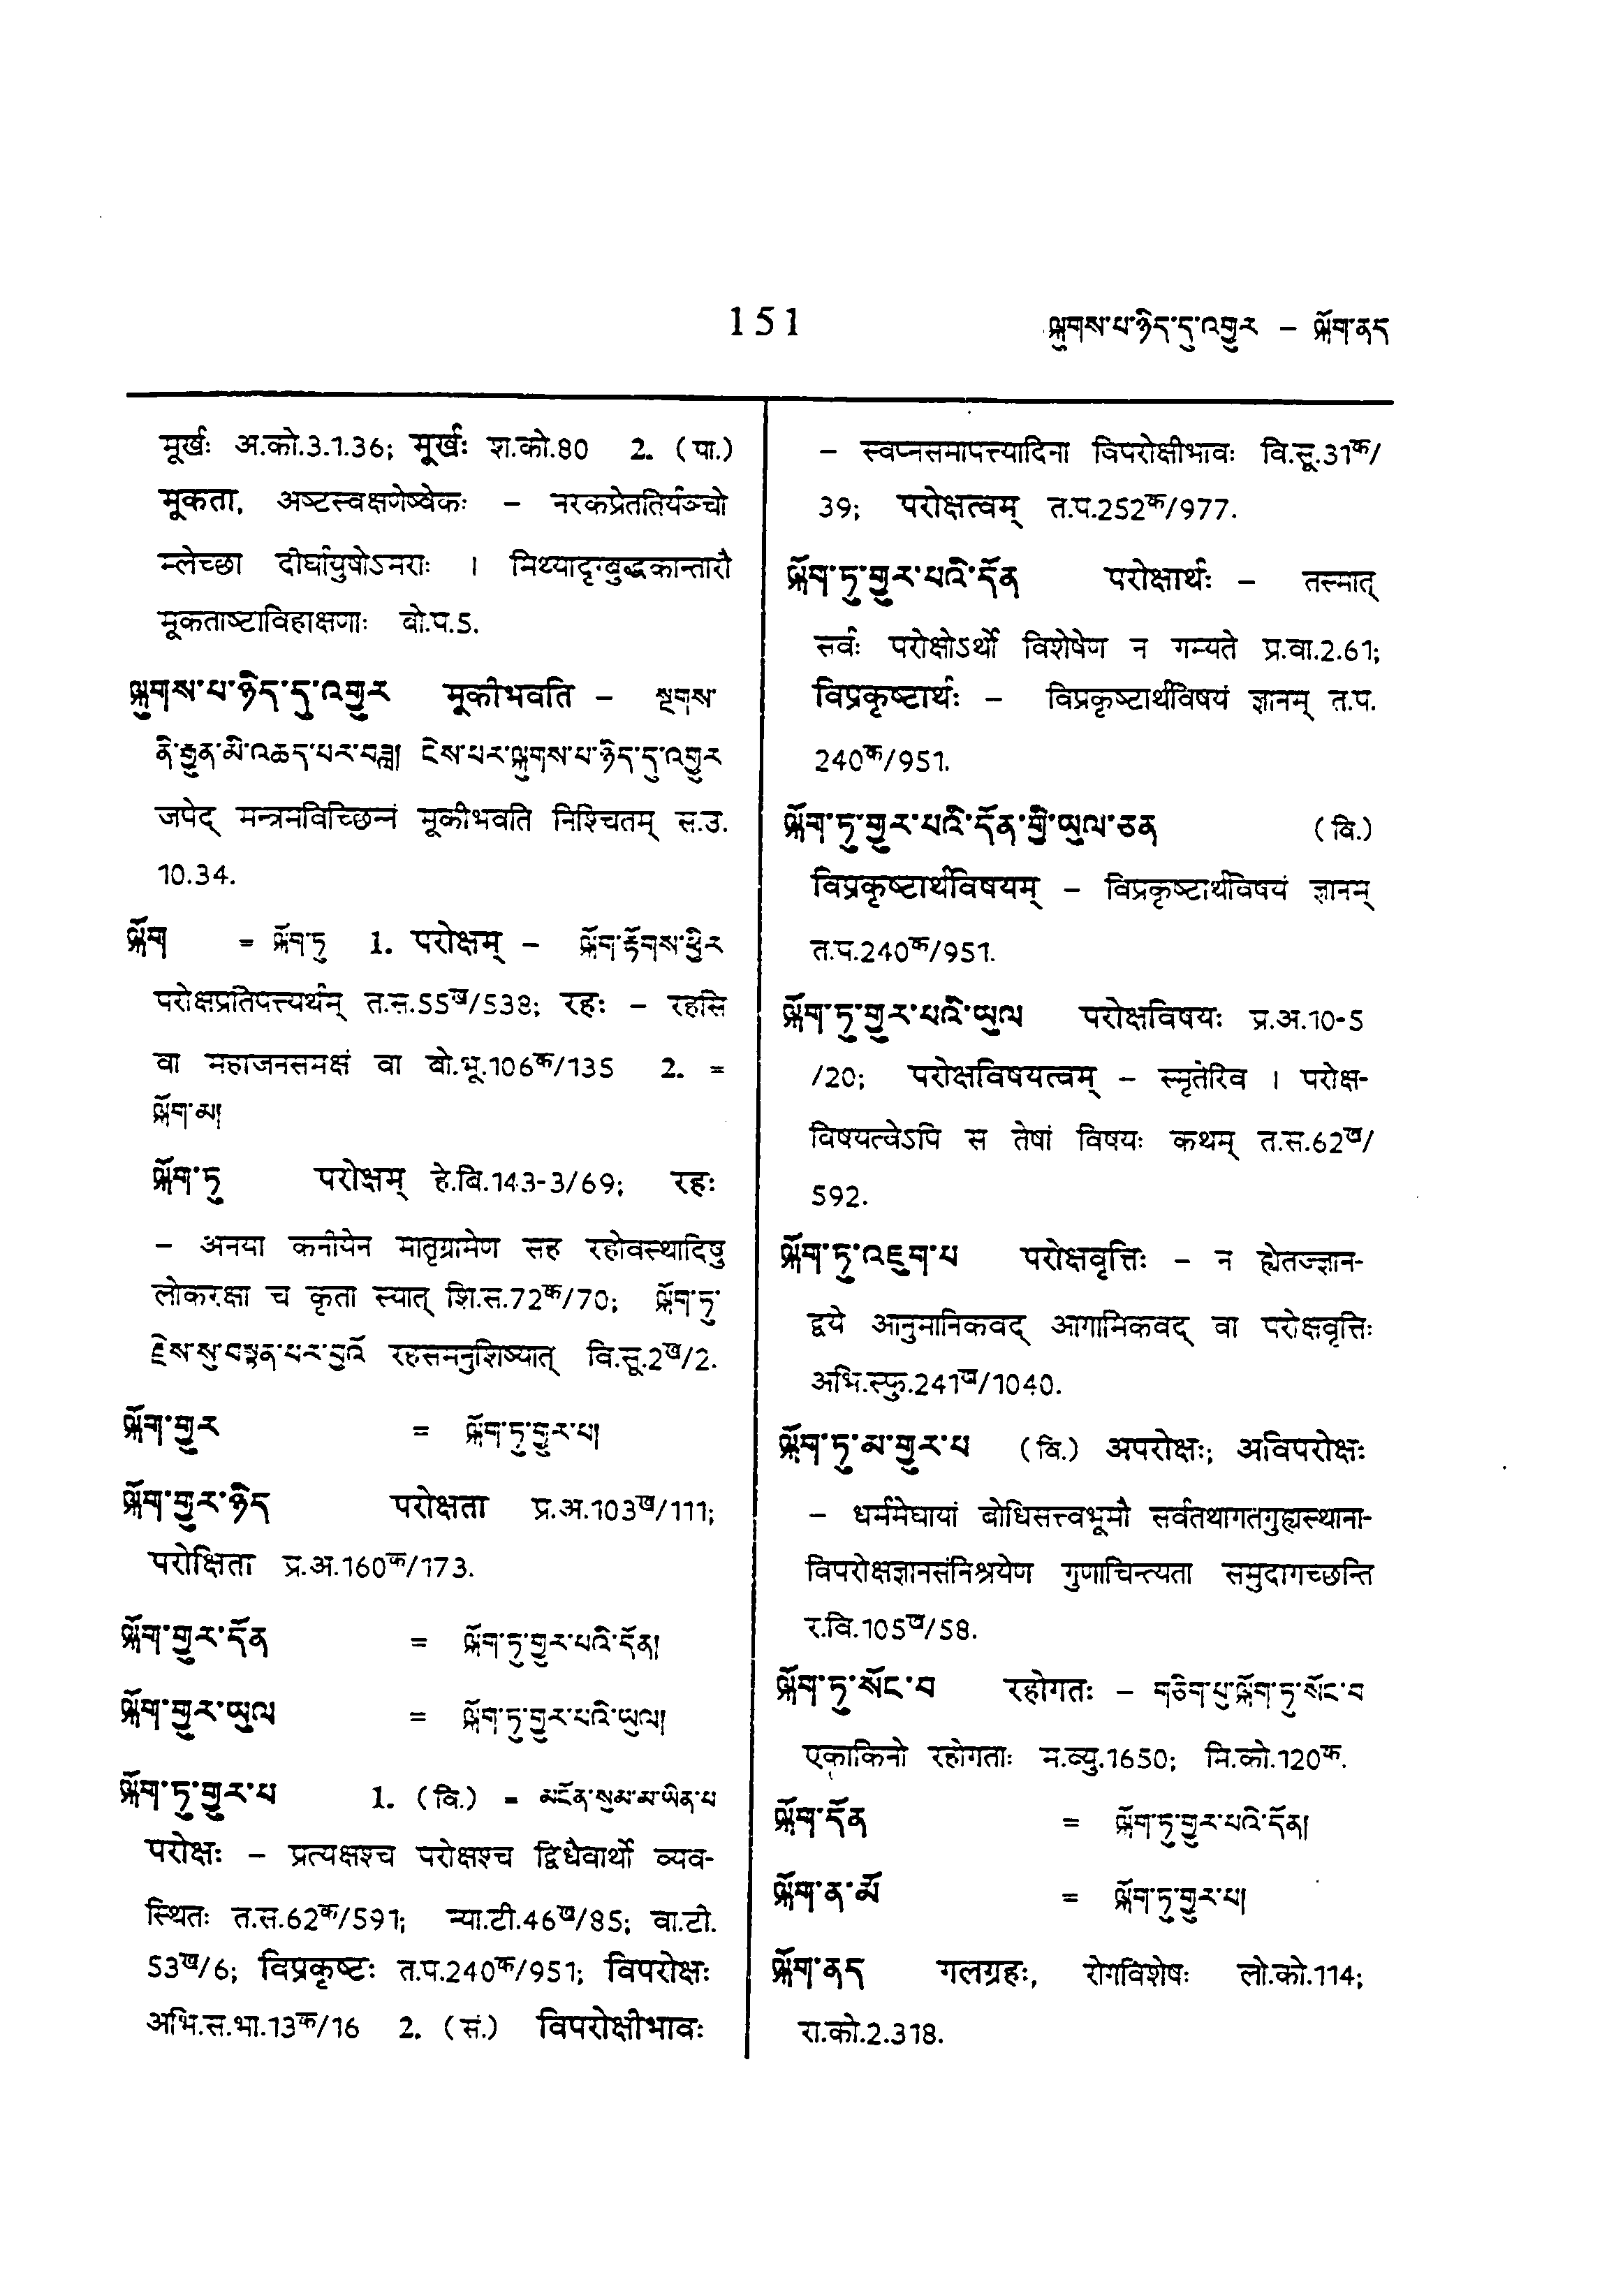 151
ལྐུགས་པ་ཉིད་དུ་འགྱུར – ལྐོག་ནད
मूर्खः अ.को.3.1.36; मूर्खः श.को.80 2. (पा.)
मूकता, अष्टस्वक्षणेष्वेकः – नरकप्रेततिर्यञ्चो
म्लेच्छा दीर्घायुषोऽमराः । मिथ्यादृग्बुद्धकान्तारौ
मूकताष्टाविहाक्षणाः बो.प.5.
ལྐུགས་པ་ཉིད་དུ་འགྱུར मूकीभवति – སྔགས་
ནི་རྒྱུན་མི་འཆད་པར་བཟླ། ངེས་པར་ལྐུགས་པ་ཉིད་དུ་འགྱུར
जपेद् मन्त्रमविच्छिन्नं मूकीभवति निश्चितम् स.उ.
10.34.
ལྐོག = ལྐོག་ཏུ 1. परोक्षम् – ལྐོག་རྟོགས་ཕྱིར
परोक्षप्रतिपत्त्यर्थम् त.स.55ख/538; रहः – रहसि
वा महाजनसमक्षं वा बो.भू.106क/135 2. =
ལྐོག་མ།
ལྐོག་ཏུ परोक्षम् हे.बि.143-3/69; रहः
– अनया कनीयेन मातृग्रामेण सह रहोवस्थादिषु
लोकरक्षा च कृता स्यात् शि.स.72क/70; ལྐོག་ཏུ་
རྗེས་སུ་བསྟན་པར་བྱའོ रहसमनुशिष्यात् वि.सू.2ख/2.
ལྐོག་གྱུར = ལྐོག་ཏུ་གྱུར་པ།
ལྐོག་གྱུར་ཉིད परोक्षता प्र.अ.103ख/111;
परोक्षिता प्र.अ.160क/173.
ལྐོག་གྱུར་དོན = ལྐོག་ཏུ་གྱུར་པའི་དོན།
ལྐོག་གྱུར་ཡུལ = ལྐོག་ཏུ་གྱུར་པའི་ཡུལ།
ལྐོག་ཏུ་གྱུར་པ 1. (वि.) = མངོན་སུམ་མ་ཡིན་པ
परोक्षः – प्रत्यक्षश्च परोक्षश्च द्विधैवार्थो व्यव-
स्थितः त.स.62क/591; न्या.टी.46ख/85; वा.टी.
53ख/6; विप्रकृष्टः त.प.240क/951; विपरोक्षः
अभि.स.भा.13क/16 2. (सं.) विपरोक्षीभावः
– स्वप्नसमापत्त्यादिना विपरोक्षीभावः वि.सू.31क/
39; परोक्षत्वम् त.प.252क/977.
ལྐོག་ཏུ་གྱུར་པའི་དོན परोक्षार्थः – तस्मात्
सर्वः परोक्षोऽर्थो विशेषेण न गम्यते प्र.वा.2.61;
विप्रकृष्टार्थः – विप्रकृष्टार्थविषयं ज्ञानम् त.प.
240क/951.
ལྐོག་ཏུ་གྱུར་པའི་དོན་གྱི་ཡུལ་ཅན (वि.)
विप्रकृष्टार्थविषयम् – विप्रकृष्टार्थविषयं ज्ञानम्
त.प.240क/951.
ལྐོག་ཏུ་གྱུར་པའི་ཡུལ परोक्षविषयः प्र.अ.10-5
/20; परोक्षविषयत्वम् – स्मृतेरिव । परोक्ष-
विषयत्वेऽपि स तेषां विषयः कथम् त.स.62ख/
592.
ལྐོག་ཏུ་འཇུག་པ परोक्षवृत्तिः – न ह्येतज्ज्ञान-
द्वये आनुमानिकवद् आगामिकवद् वा परोक्षवृत्तिः
अभि.स्फु.241ख/1040.
ལྐོག་ཏུ་མ་གྱུར་པ (वि.) अपरोक्षः; अविपरोक्षः
– धर्ममेघायां बोधिसत्त्वभूमौ सर्वतथागतगुह्यस्थाना-
विपरोक्षज्ञानसंनिश्रयेण गुणाचिन्त्यता समुदागच्छन्ति
र.वि.105ख/58.
ལྐོག་ཏུ་སོང་བ रहोगतः – གཅིག་པུ་ལྐོག་ཏུ་སོང་བ
एकाकिनो रहोगताः म.व्यु.1650; मि.को.120क.
ལྐོག་དོན = ལྐོག་ཏུ་གྱུར་པའི་དོན།
ལྐོག་ན་མོ = ལྐོག་ཏུ་གྱུར་པ།
ལྐོག་ནད गलग्रहः, रोगविशेषः लो.को.114;
रा.को.2.318.